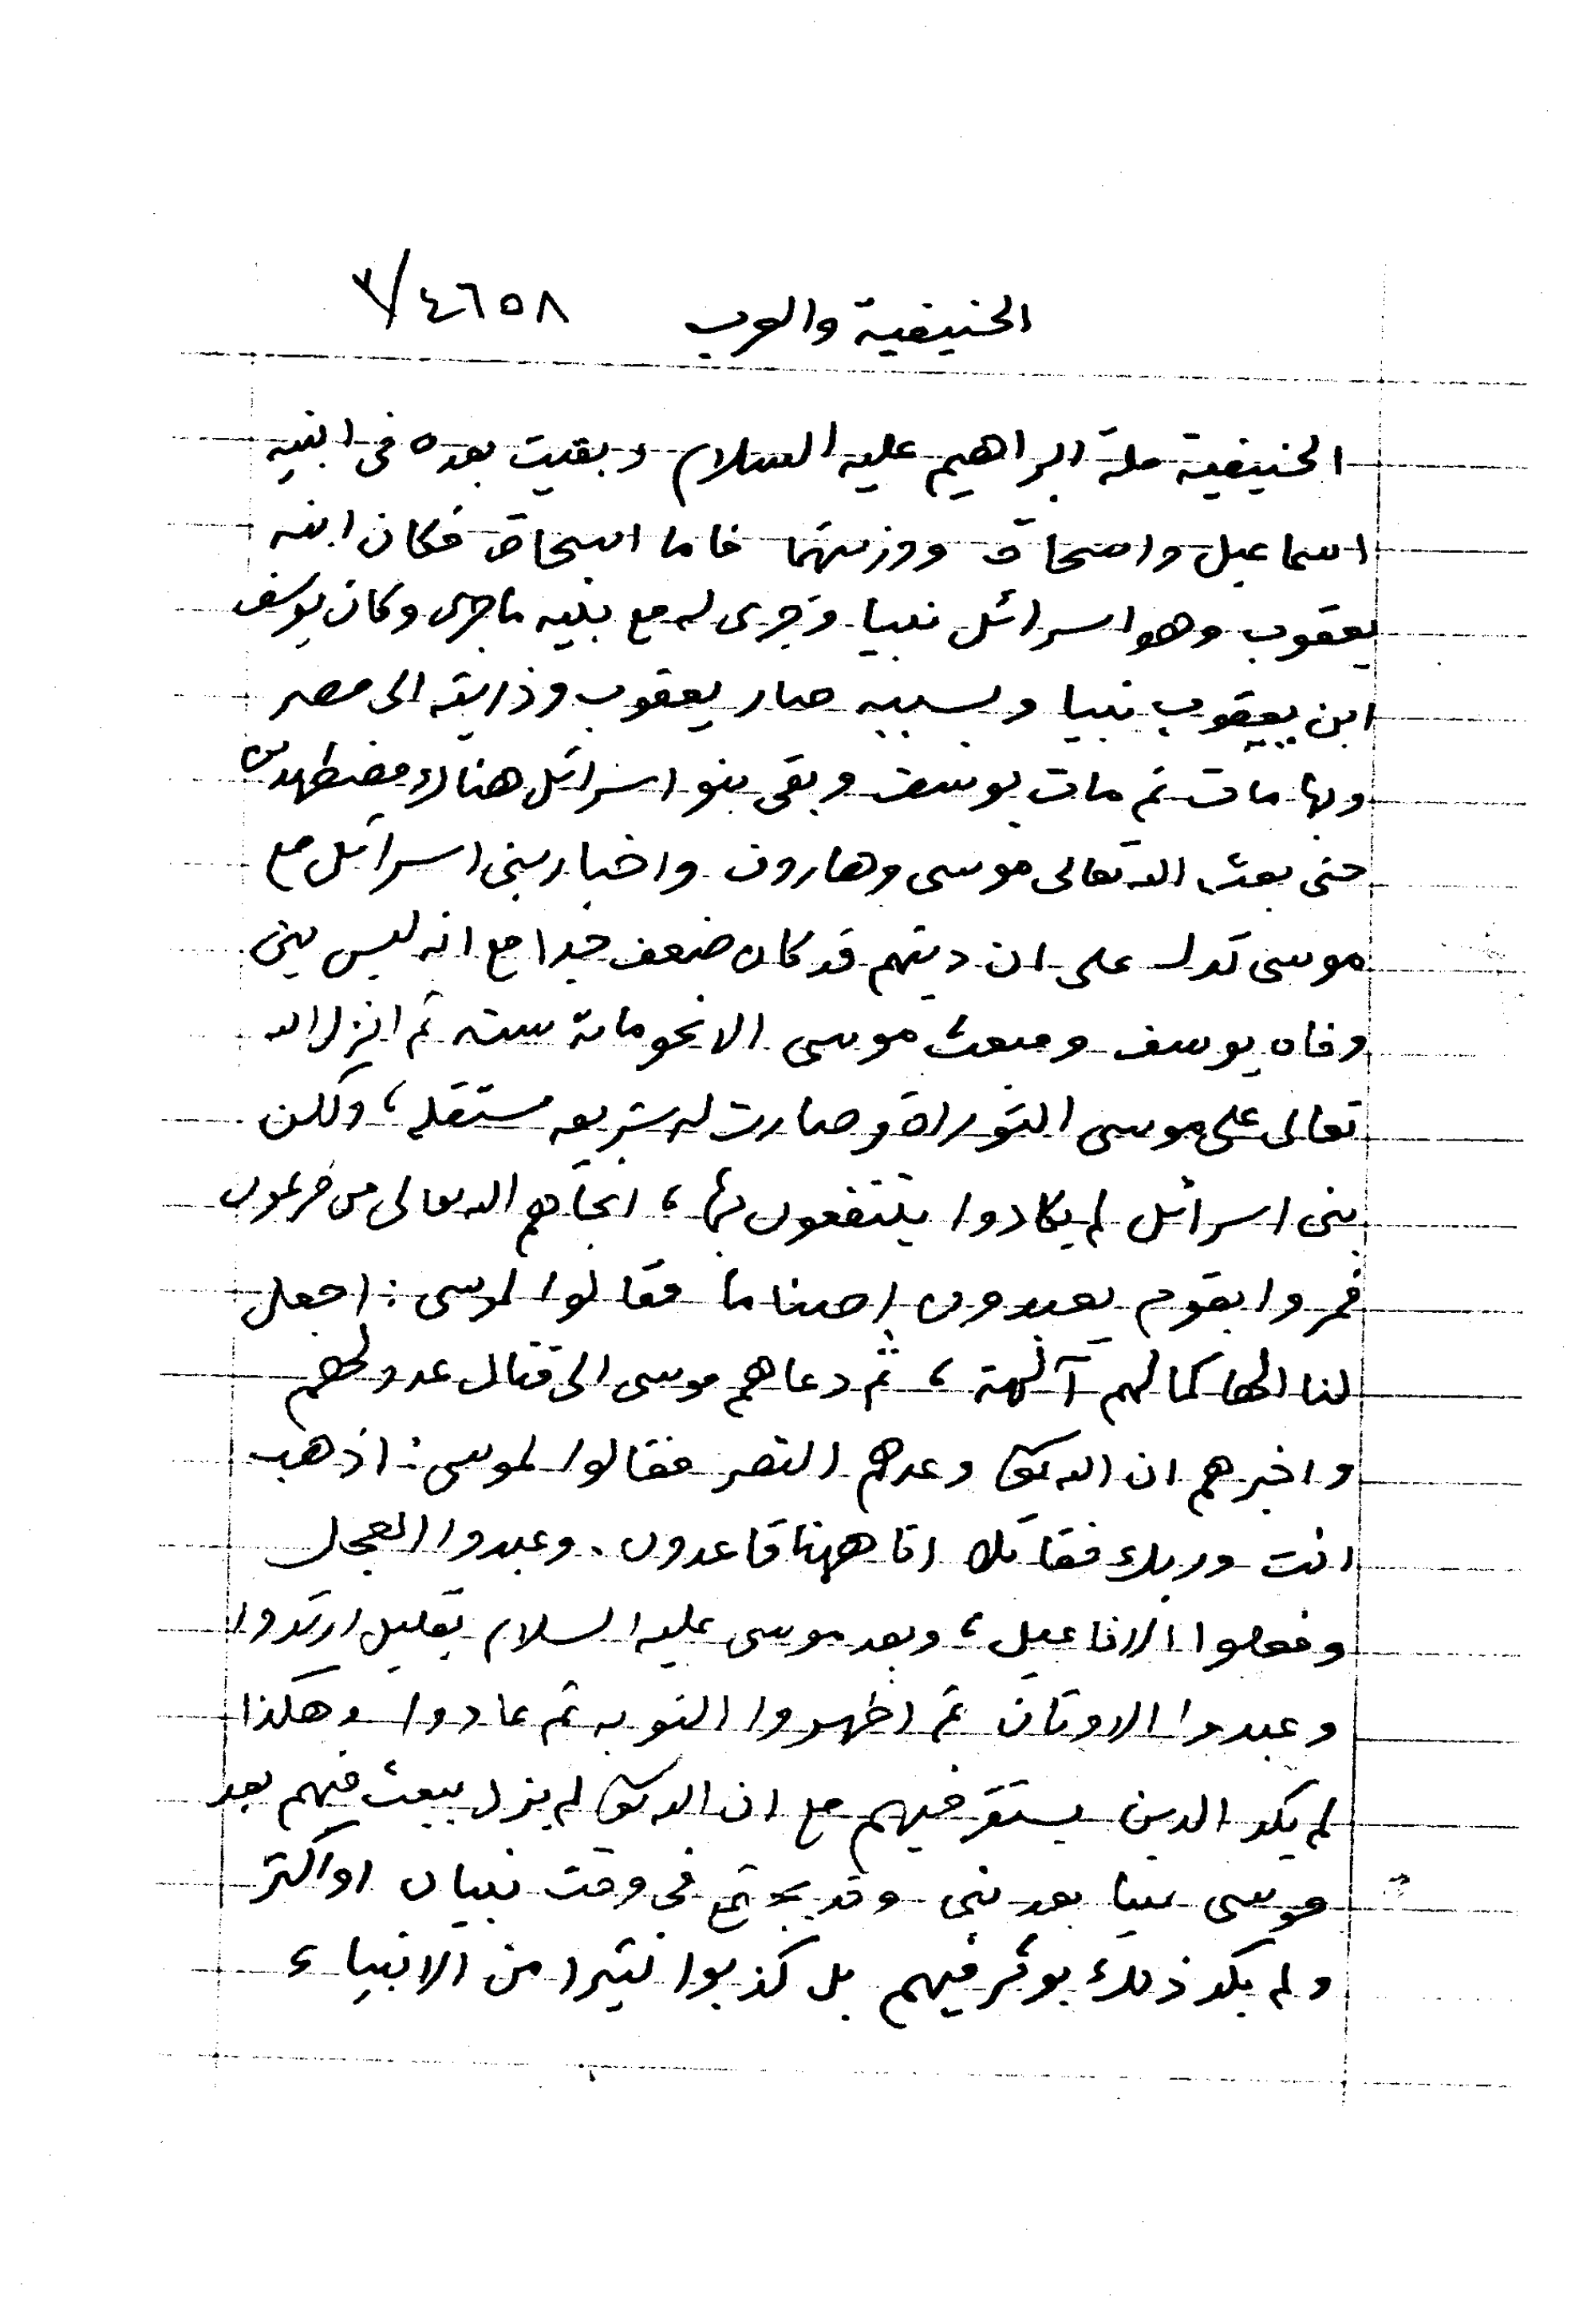 الحنيفية والعرب ٤٦٥٨/٢
الحنيفية ملة ابراهيم عليه السلام وبقيت بعده فى ابنيه
اسماعيل واصحاق وذريتهما فاما اسحاق فكان ابنه
يعقوب وهو اسرائل نبيا وجرى له مع بنيه ماجرى وكان يوسف
ابن يعقوب نبيا وبسببه صار يعقوب وذريته الى مصر
وبها مات ثم مات يوسف وبقى بنو اسرائل هناك مضطهدين
حتى بعث الله تعالى موسى وهارون واخبار بنى اسرائل مع
موسى تدل على ان دينهم قد كان ضعف جدا مع انه ليس بين
وفاه يوسف ومبعث موسى الا نحو مائة سنه ثم انزل الله
تعالى على موسى التوراة وصارت له شريعه مستقله ، ولكن
بنى اسرائل لم يكادوا ينتفعون بها ، انجاهم الله تعالى من فرعون
فمروا بقوم يعبدون اصناما فقالوا لموسى : اجعل
لنا الها كما لهم آلهة ، ثم دعاهم موسى الى قتال عدو لهم
واخبرهم ان الله وعدهم النصر فقالوا لموسى : اذهب
انت وربك فقاتلا انا ههنا قاعدون . وعبدوا العجل
وفعلوا الافاعيل ، وبعد موسى عليه السلام بقليل ارتدوا
وعبدوا الاوثان ثم اظهروا التوبه ثم عادوا وهكذا
لم يكد الدين يستقر فيهم مع ان الله لم يزل يبعث فيهم بعد
موسى نبيا بعد نبى وقد يجتمع فى وقت نبيان او اكثر
ولم يكد ذلك يوثر فيهم بل كذبوا كثيرا من الانبياء